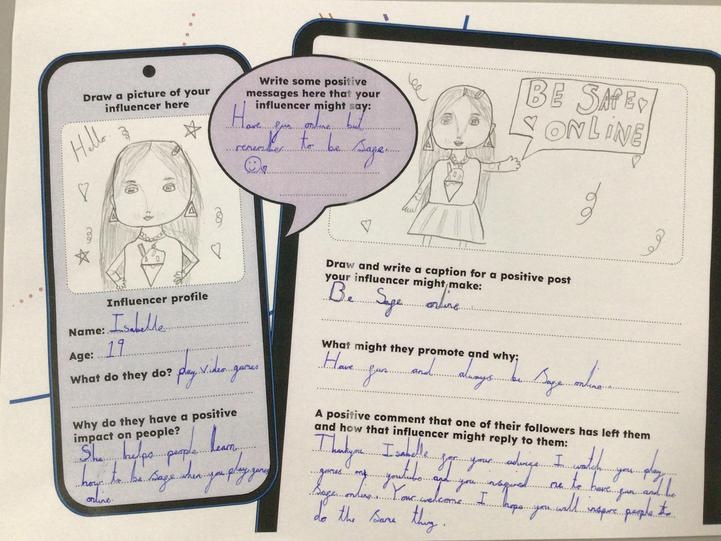 Draw a picture of your
influencer here
Hello
Influencer profile
Name: Isabelle
Age: 19
What do they do? play video games
Why do they have a positive
impact on people?
She helps people learn
how to be safe when you play games
online.
Write some positive
messages here that your
influencer might say:
Have fun online but
remember to be safe.
BE SAFE
ONLINE
Draw and write a caption for a positive post
your influencer might make:
Be safe online.
What might they promote and why:
Have fun and always be safe online.
A positive comment that one of their followers has left them
and how that influencer might reply to them:
Thankyou Isabelle for your advice I watch you play
games on youtube and you inspired me to have fun and be
safe online. Your welcome I hope you will inspire people to
do the same thing.